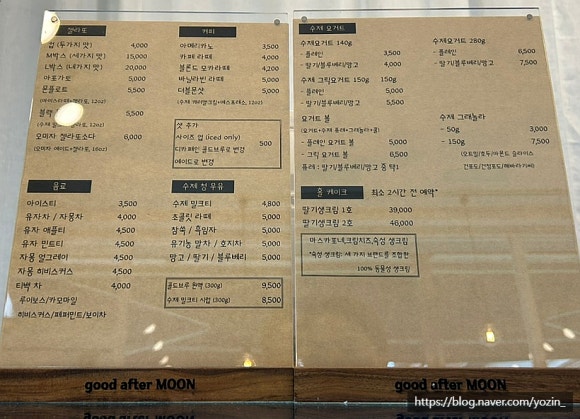 젤라또
컵 (두가지 맛) 4,000
M박스 (세가지 맛) 15,000
L박스 (네가지 맛) 20,000
아포가토 5,000
문플로트 5,500
(아이스라떼+젤라또, 12oz)
블랙 5,500
오미자 젤라또소다 6,000
(오미자 에이드+젤라또, 16oz)
커피
아메리카노 3,500
카페 라떼 4,000
블론드 모카라떼 4,200
바닐라빈 라떼 5,000
더블문샷 5,000
(수제 커피젤라또+에스프레소, 12oz)
샷 추가
사이즈 업 (iced only)
디카페인 콜드브루로 변경
에이드로 변경
500
음료
아이스티 3,500
유자차 / 자몽차 4,000
유자 애플티 4,500
유자 민트티 4,500
자몽 얼그레이 4,500
자몽 히비스커스 4,500
티백 차 4,000
루이보스/카모마일
히비스커스/페퍼민트/보이차
수제 청 우유
수제 밀크티 4,800
초콜릿 라떼 5,000
참쑥 / 흑임자 5,000
유기농 말차 / 호지차 5,000
망고 / 딸기 / 블루베리 5,000
콜드브루 원액 (300g) 9,500
수제 밀크티 시럽 (300g) 8,500
수제 요거트
수제요거트 140g
- 플레인 3,500
- 딸기/블루베리/망고 4,000
수제 그릭요거트 150g 150g
- 플레인 5,000
- 딸기/블루베리/망고 5,500
요거트 볼
(요거트+수제 퓨레+그래놀라+꿀)
- 플레인 요거트 볼 5,000
- 그릭 요거트 볼 6,500
퓨레 : 딸기/블루베리/망고 중 택1
수제요거트 280g
- 플레인 6,500
- 딸기/블루베리/망고 7,500
수제 그래놀라
- 50g 3,000
- 150g 7,500
(오트밀/호두/아몬드 슬라이스
건포도/건정포도/해바라기씨)
홀 케이크
최소 2시간 전 예약*
딸기생크림 1호 39,000
딸기생크림 2호 46,000
마스카포네,크림치즈,숙성 생크림
*숙성 생크림: 세 가지 브랜드를 조합한
100% 동물성 생크림
good after MOON
good after MOON
https://blog.naver.com/yozin_